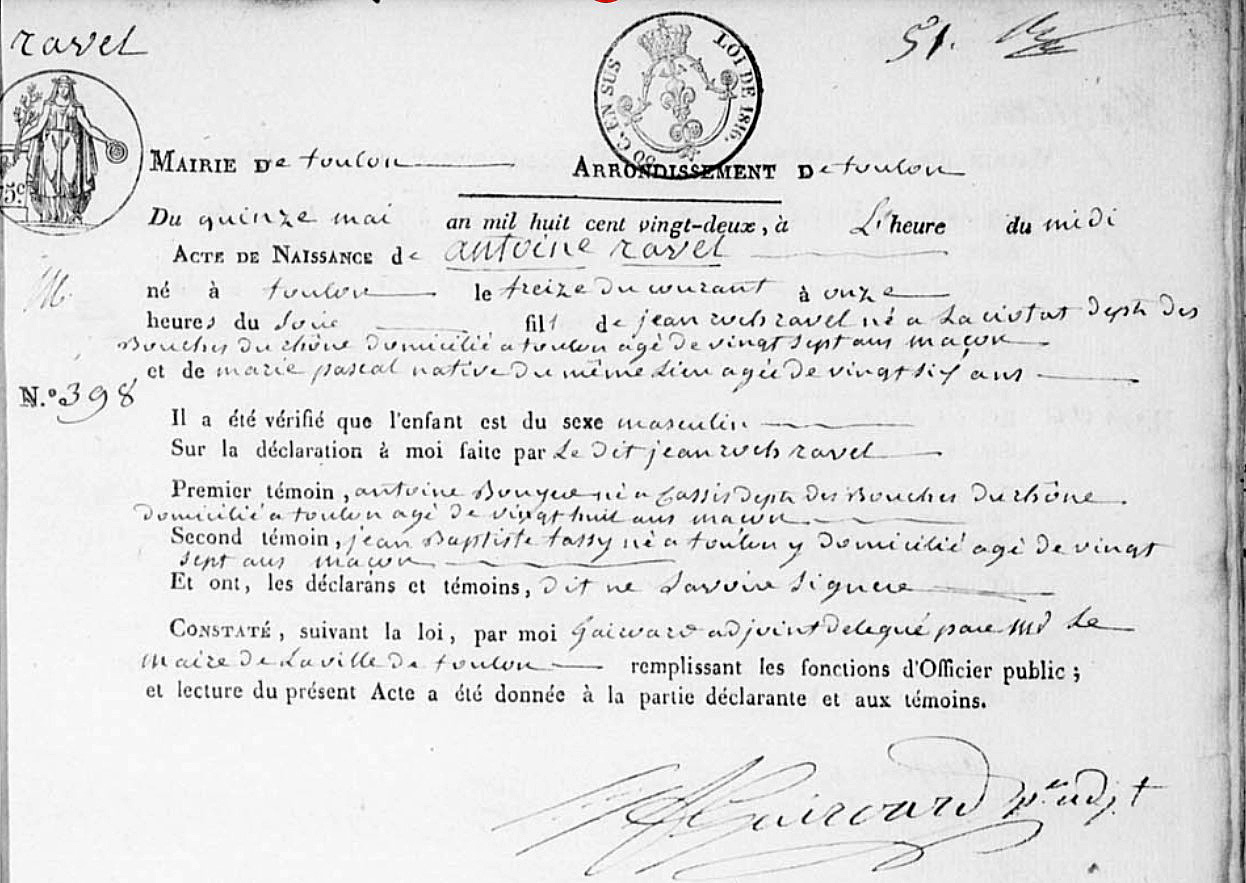 ravel
51.
50 C. EN SUS LOI DE 1816.
75 c
MAIRIE De toulon ARRONDISSEMENT De toulon
Du quinze mai an mil huit cent vingt-deux, à L'heure du midi
ACTE DE NAISSANCE de antoine ravel
né à toulon le treize du courant à onze
heures du soir fils de jean roch ravel né a La ciotat dept des
Bouches du rhône domicilié a toulon agé de vingt sept ans maçon
et de marie pascal native du même Lieu agée de vingt six ans
N.º 398
Il a été vérifié que l'enfant est du sexe masculin
Sur la déclaration à moi faite par Le dit jean roch ravel
Premier témoin, antoine né a Cassis dept des Bouches du rhône
domicilié a toulon agé de vingt huit ans maçon
Second témoin, jean Baptiste tassy né a toulon y domicilié agé de vingt
sept ans maçon
Et ont, les déclarans et témoins, dit ne Savoir Signer
CONSTATÉ, suivant la loi, par moi Gairoard adjoint delegué par Mr Le
maire de La ville de toulon remplissant les fonctions d'Officier public;
et lecture du présent Acte a été donnée à la partie déclarante et aux témoins.
Gairoard pr adjt